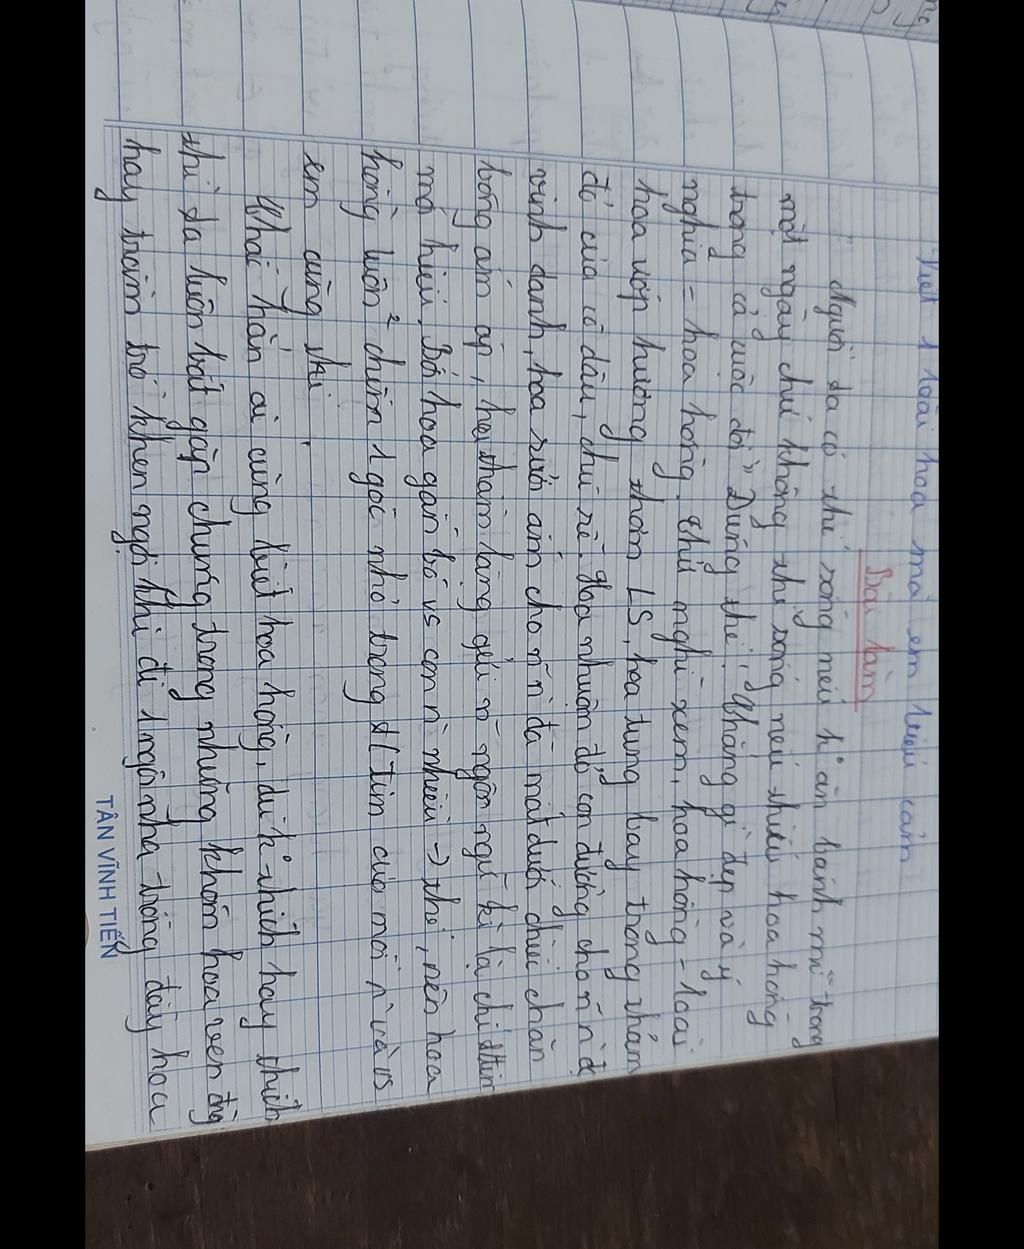 Viết 1 loài hoa mà em biểu cảm
Bài làm
"Người ta có thể sống nếu k° ăn bánh mì trong
một ngày chứ không thể sống nếu thiếu hoa hồng
trong cả cuộc đời" Đúng thế, chẳng gì đẹp và ý
nghĩa = hoa hồng. Thử nghĩ xem, hoa hồng - loài
hoa vốn hương thơm LS, hoa tung bay trong thảm
đỏ của cô dâu, chú rể. Hoa nhuộm đỏ con đường cho
vinh danh, hoa sưởi ấm cho đã mất dưới chiếu chăn
bông ấm áp, hoa thầm lặng gửi ngôn ngữ kì lạ chỉ
mới hiểu. Bởi hoa gắn bó vs con nhiều → thế, nên hoa
hồng luôn² chiếm 1 góc nhỏ trong tim của mỗi và vs
em cũng thế.
Chắc hẳn ai cũng biết hoa hồng, dù k° thích hay thích
thì ta luôn bắt gặp chúng trong những khóm hoa ven
hay trầm trồ khen ngợi khi đi 1 ngôi nhà trồng đầy hoa
TÂN VĨNH TIẾN